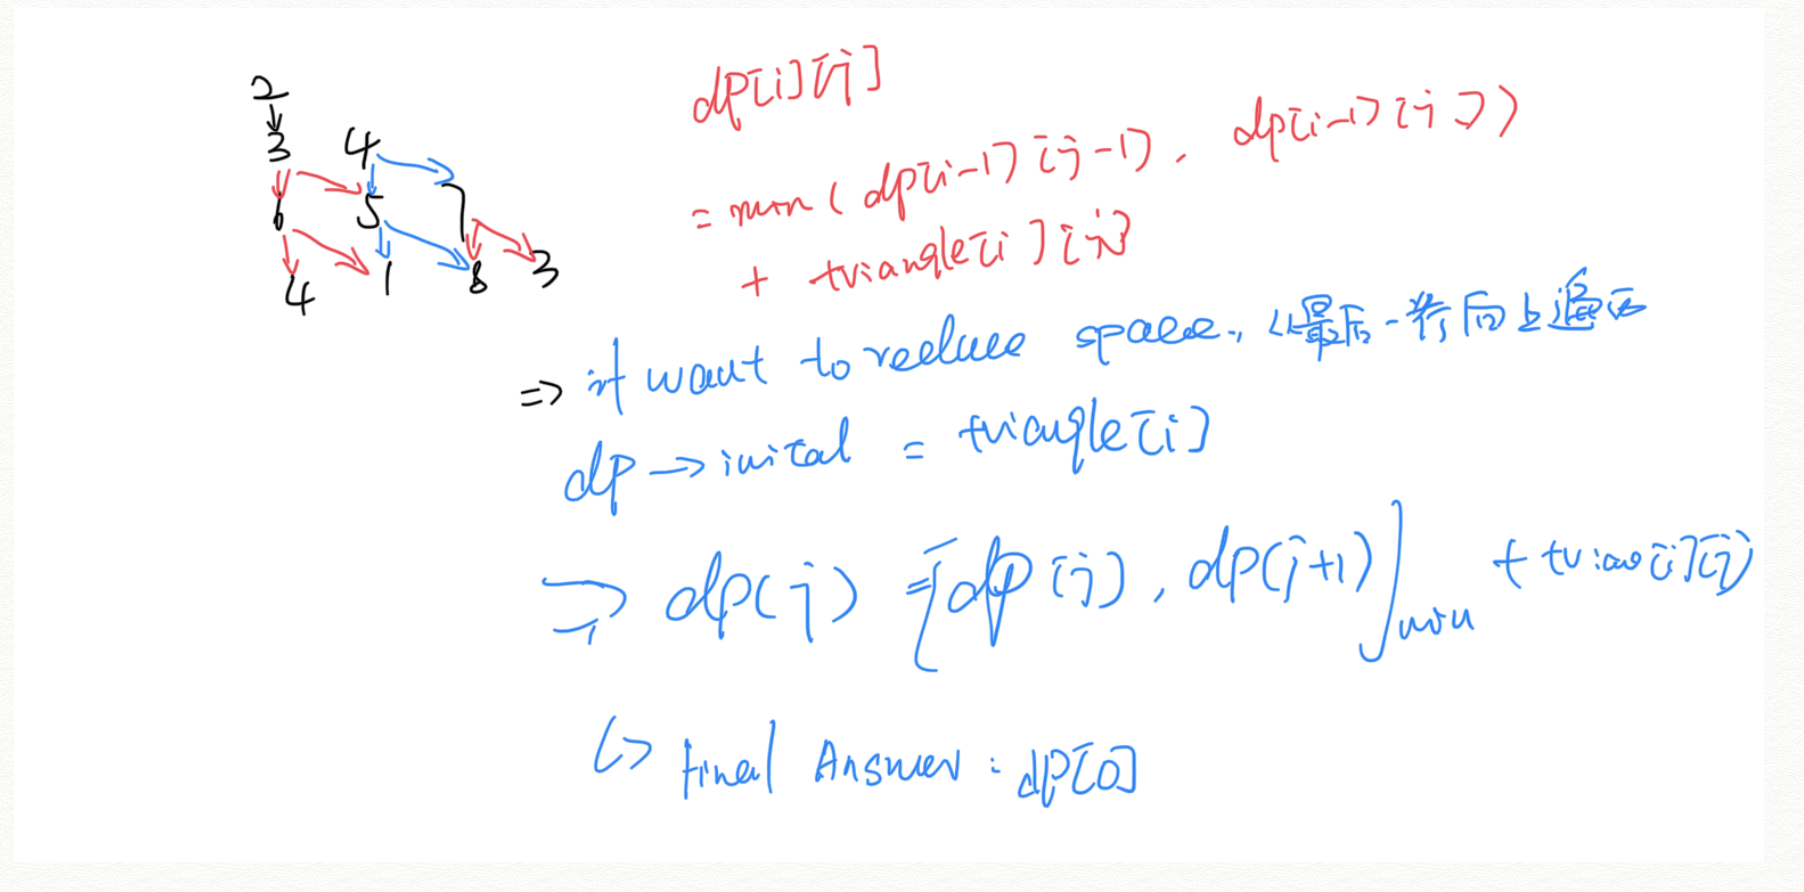 2
3 4
6 5 7
4 1 8 3
dp[i][j]
= min ( dp[i-1][j-1], dp[i-1][j])
+ triangle[i][j]
=> if want to reduce space, 从最后一行向上遍历
dp → inital = triangle[i]
=> dp(j) = [dp[j], dp(j+1)]min + trian[i][j]
↳ final Answer: dp[0]